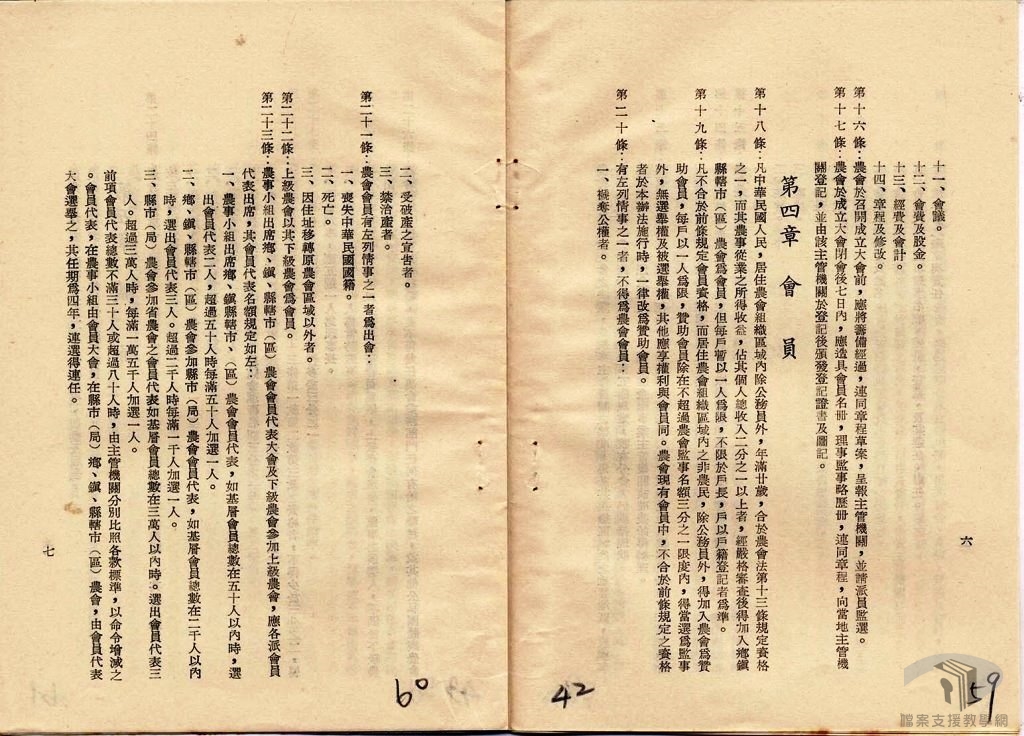 十一、會議。
十二、會費及股金。
十三、經費及會計。
十四、章程及修改。
第十六條：農會於召開成立大會前，應將籌備經過，連同章程草案，呈報主管機關，並請派員監選。
第十七條：農會於成立大會閉會後七日內，應造具會員名冊，理事監事略歷冊，連同章程，向當地主管機
關登記，並由該主管機關於登記後頒發登記證書及圖記。
第四章　會　員
第十八條：凡中華民國人民，居住農會組織區域內除公務員外，年滿廿歲，合於農會法第十三條規定資格
之一，而其農事從業之所得收益，佔其個人總收入二分之一以上者，經嚴格審查後得加入鄉鎮
縣轄市（區）農會為會員，但每戶暫以一人為限，不限於戶長，戶以戶籍登記者為準。
第十九條：凡不合於前條規定會員資格，而居住農會組織區域內之非農民，除公務員外，得加入農會為贊
助會員，每戶以一人為限，贊助會員除在不超過農會監事名額三分之一限度內，得當選為監事
外，無選舉權及被選舉權，其他應享權利與會員同。農會現有會員中，不合於前條規定之資格
者於本辦法施行時，一律改為贊助會員。
第二十條：有左列情事之一者，不得為農會會員：
一、褫奪公權者。
六
42
59
檔案支援教學網
二、受破產之宣告者。
三、禁治產者。
第二十一條：農會會員有左列情事之一者為出會：
一、喪失中華民國國籍。
二、死亡。
三、因住址移轉原農會區域以外者。
第二十二條：上級農會以其下級農會為會員。
第二十三條：農事小組出席鄉、鎮、縣轄市（區）農會會員代表大會及下級農會參加上級農會，應各派會員
代表出席，其會員代表名額規定如左：
一、農事小組出席鄉、鎮縣轄市、（區）農會會員代表，如基層會員總數在五十人以內時，選
出會員代表二人，超過五十人時每滿五十人加選一人。
二、鄉、鎮、縣轄市（區）農會參加縣市（局）農會會員代表，如基層會員總數在二千人以內
時，選出會員代表三人。超過二千人時每滿一千人加選一人。
三、縣市（局）農會參加省農會之會員代表如基層會員總數在三萬人以內時。選出會員代表三
人。超過三萬人時，每滿一萬五千人加選一人。
前項會員代表總數不滿三十人或超過八十人時，由主管機關分別比照各款標準，以命令增減之
。會員代表，在農事小組由會員大會，在縣市（局）鄉、鎮、縣轄市（區）農會，由會員代表
大會選舉之，其任期為四年，連選得連任。
七
60